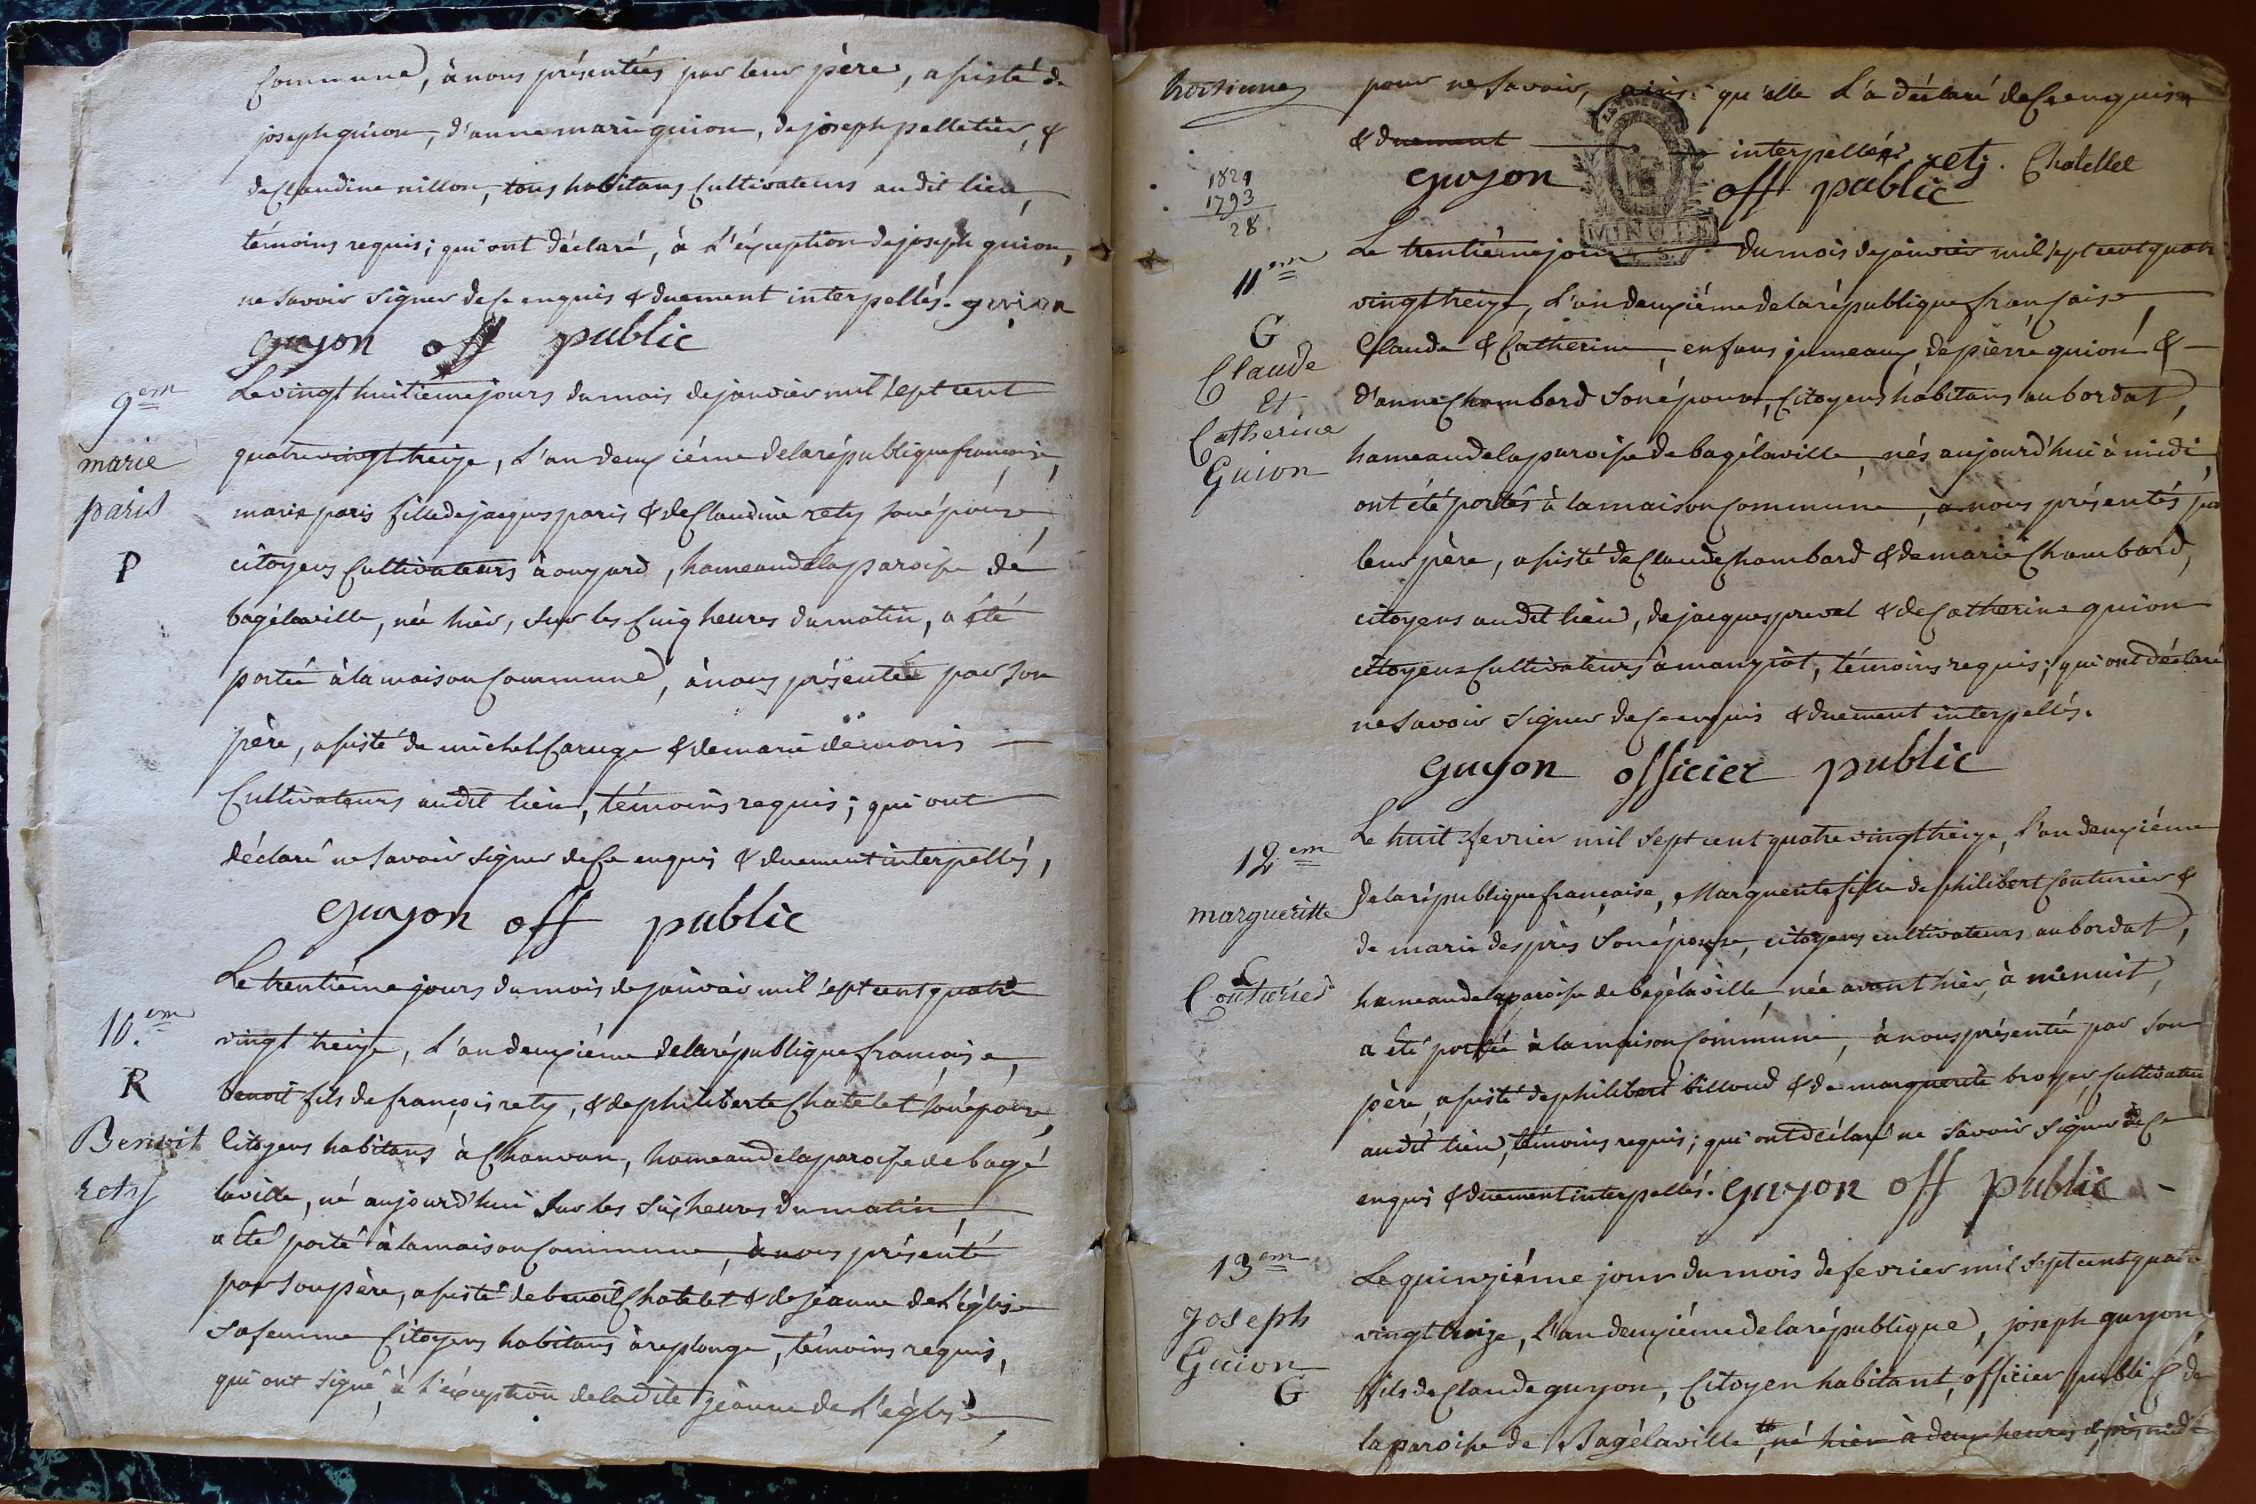 Commune, à nous présentés par leur père, assisté de
joseph guion, d'anne marie guion, de joseph pelletier, &
de Claudine nillon, tous habitans Cultivateurs audit lieu,
témoins requis; qui ont déclaré, à L'éxception de joseph guion,
ne savoir signer de Ce enquis & duement interpellés. guion
guyon off public
9em
marie
paris
P
Le vingt huitième jours du mois de janvier mil sept cent
quatre vingt treize, L'an deuxième de la république françoise,
marie paris fille de jacques paris & de Claudine rety son épouse,
citoyens Cultivateurs à ouyard, hameau de la paroisse de
bagélaville, née hier, sur les Cinq heures du matin, a été
portée à la maison Commune, à nous présentée par son
père, assisté de michel Caruge & de marie demoris
Cultivateurs audit lieu, témoins requis; qui ont
déclaré ne savoir signer de Ce enquis & duement interpellés,
guyon off public
10.em
R
Benoit
rety
Le trentième jours du mois de janvier mil sept cent quatre
vingt treize, L'an deuxième de la république françoise,
benoit fils de françois rety, & de philiberte Chatelet son épouse,
Citoyens habitans à Chanvan, hameau de la paroisse de bagé
laville, né aujourd'hui sur les six heures du matin,
a été porté à la maison Commune, à nous présenté
par son père, assisté de benoit Chatelet & de jeanne de L'église
sa femme Citoyens habitans à replonge, témoins requis,
qui ont signé, à L'éxception de ladite jeanne de L'église,
troisieme
pour ne savoir, ainsi qu'elle L'a déclaré de Ce enquise
& duement interpellée. retj. Chatellet
guyon off public
MINUTE
1821
1793
28
11em
G
Claude
Et
Catherine
Guion
Le trentième jour du mois de janvier mil sept cent quatre
vingt treize, L'an deuxième de la république françaisse,
Claude & Catherine, enfans jumeaux de pierre guion &
d'anne Chambard son épouse, Citoyens habitans au bordat,
hameau de la paroisse de bagélaville, nés aujourd'hui à midi,
ont été portés à la maison Commune, à nous présentés par
leur père, assisté de Claude Chambard & de marie Chambard,
citoyens audit lieu, de jacques prevel & de Catherine guion
citoyens Cultivateurs à manziat, témoins requis; qui ont déclaré
ne savoir signer de Ce enquis & duement interpellés.
guyon officier public
12em
margueritte
C
Couturier
Le huit fevrier mil sept cent quatre vingt treize, L'an deuxième
de la république française, Marguerite fille de philibert Couturier &
de marie desprès son épouse, citoyens cultivateurs au bordat,
hameau de la paroisse de bagélaville, née avant hier, à minuit,
a été portée à la maison Commune, à nous présentée par son
père, assisté de philibert billoud & de marguerite broyer, Cultivateurs
audit lieu, témoins requis; qui ont déclaré ne savoir signer de Ce
enquis & duement interpellés. guyon off public
13em
Joseph
Guion
G
Le quinzième jour du mois de fevrier mil sept cent quatre
vingt treize, L'an deuxième de la république, joseph guyon,
fils de Claude guyon, Citoyen habitant, officier public de
la paroisse de Bagélaville, né hier à deux heures après midi